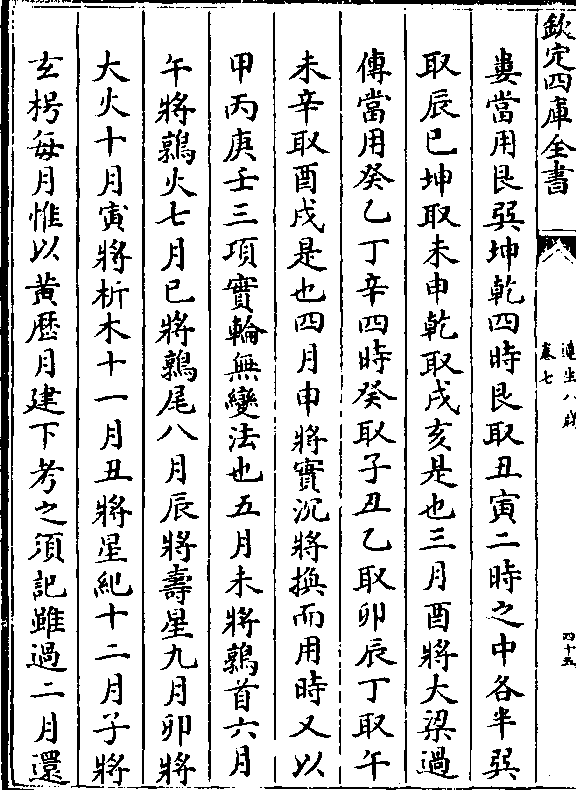 欽定四庫全書
遵生八牋
卷七
四十五
婁當用艮巽坤乾四時艮取丑寅二時之中各半巽
取辰巳坤取未申乾取戌亥是也三月酉將大梁過
傳當用癸乙丁辛四時癸取子丑乙取卯辰丁取午
未辛取酉戌是也四月申將實沉將換而用時又以
甲丙庚壬三項實輪無變法也五月未將鶉首六月
午將鶉火七月巳將鶉尾八月辰將壽星九月卯將
大火十月寅將析木十一月丑將星紀十二月子將
玄枵每月惟以黃歴月建下考之須記雖過二月還